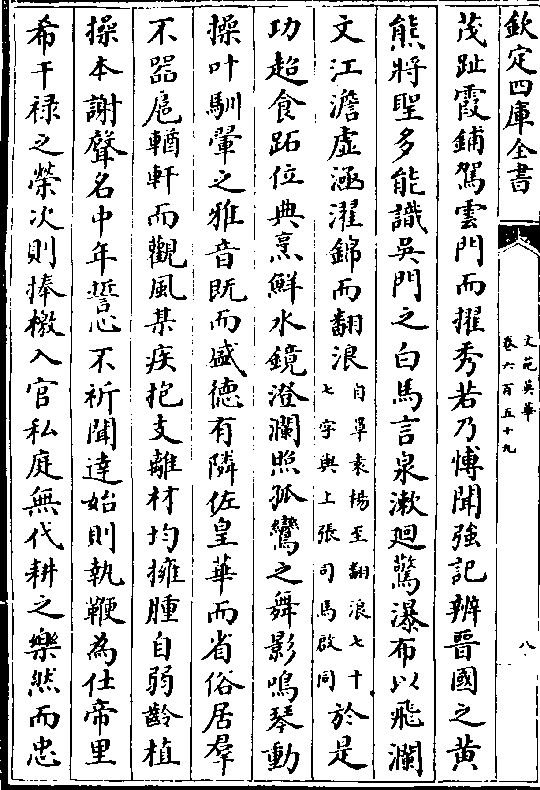 欽定四庫全書
文苑英華
卷六百五十九
八
茂趾霞鋪駕雲門而擢秀若乃博聞強記辨晉國之黄
熊將聖多能識吳門之白馬言泉漱迴驚瀑布以飛瀾
文江澹虛涵濯錦而翻浪自單袁楊至翻浪七十七字與上張司馬啟同於是
功超食跖位典烹鮮水鏡澄瀾照孤鸞之舞影鳴琴動
操叶馴翬之雅音既而盛德有隣佐皇華而省俗居羣
不器扈輶軒而觀風某疾抱支離材均擁腫自弱齡植
操本謝聲名中年誓心不祈聞達始則執鞭為仕帝里
希干祿之榮次則捧檄入官私庭無代耕之樂然而忠